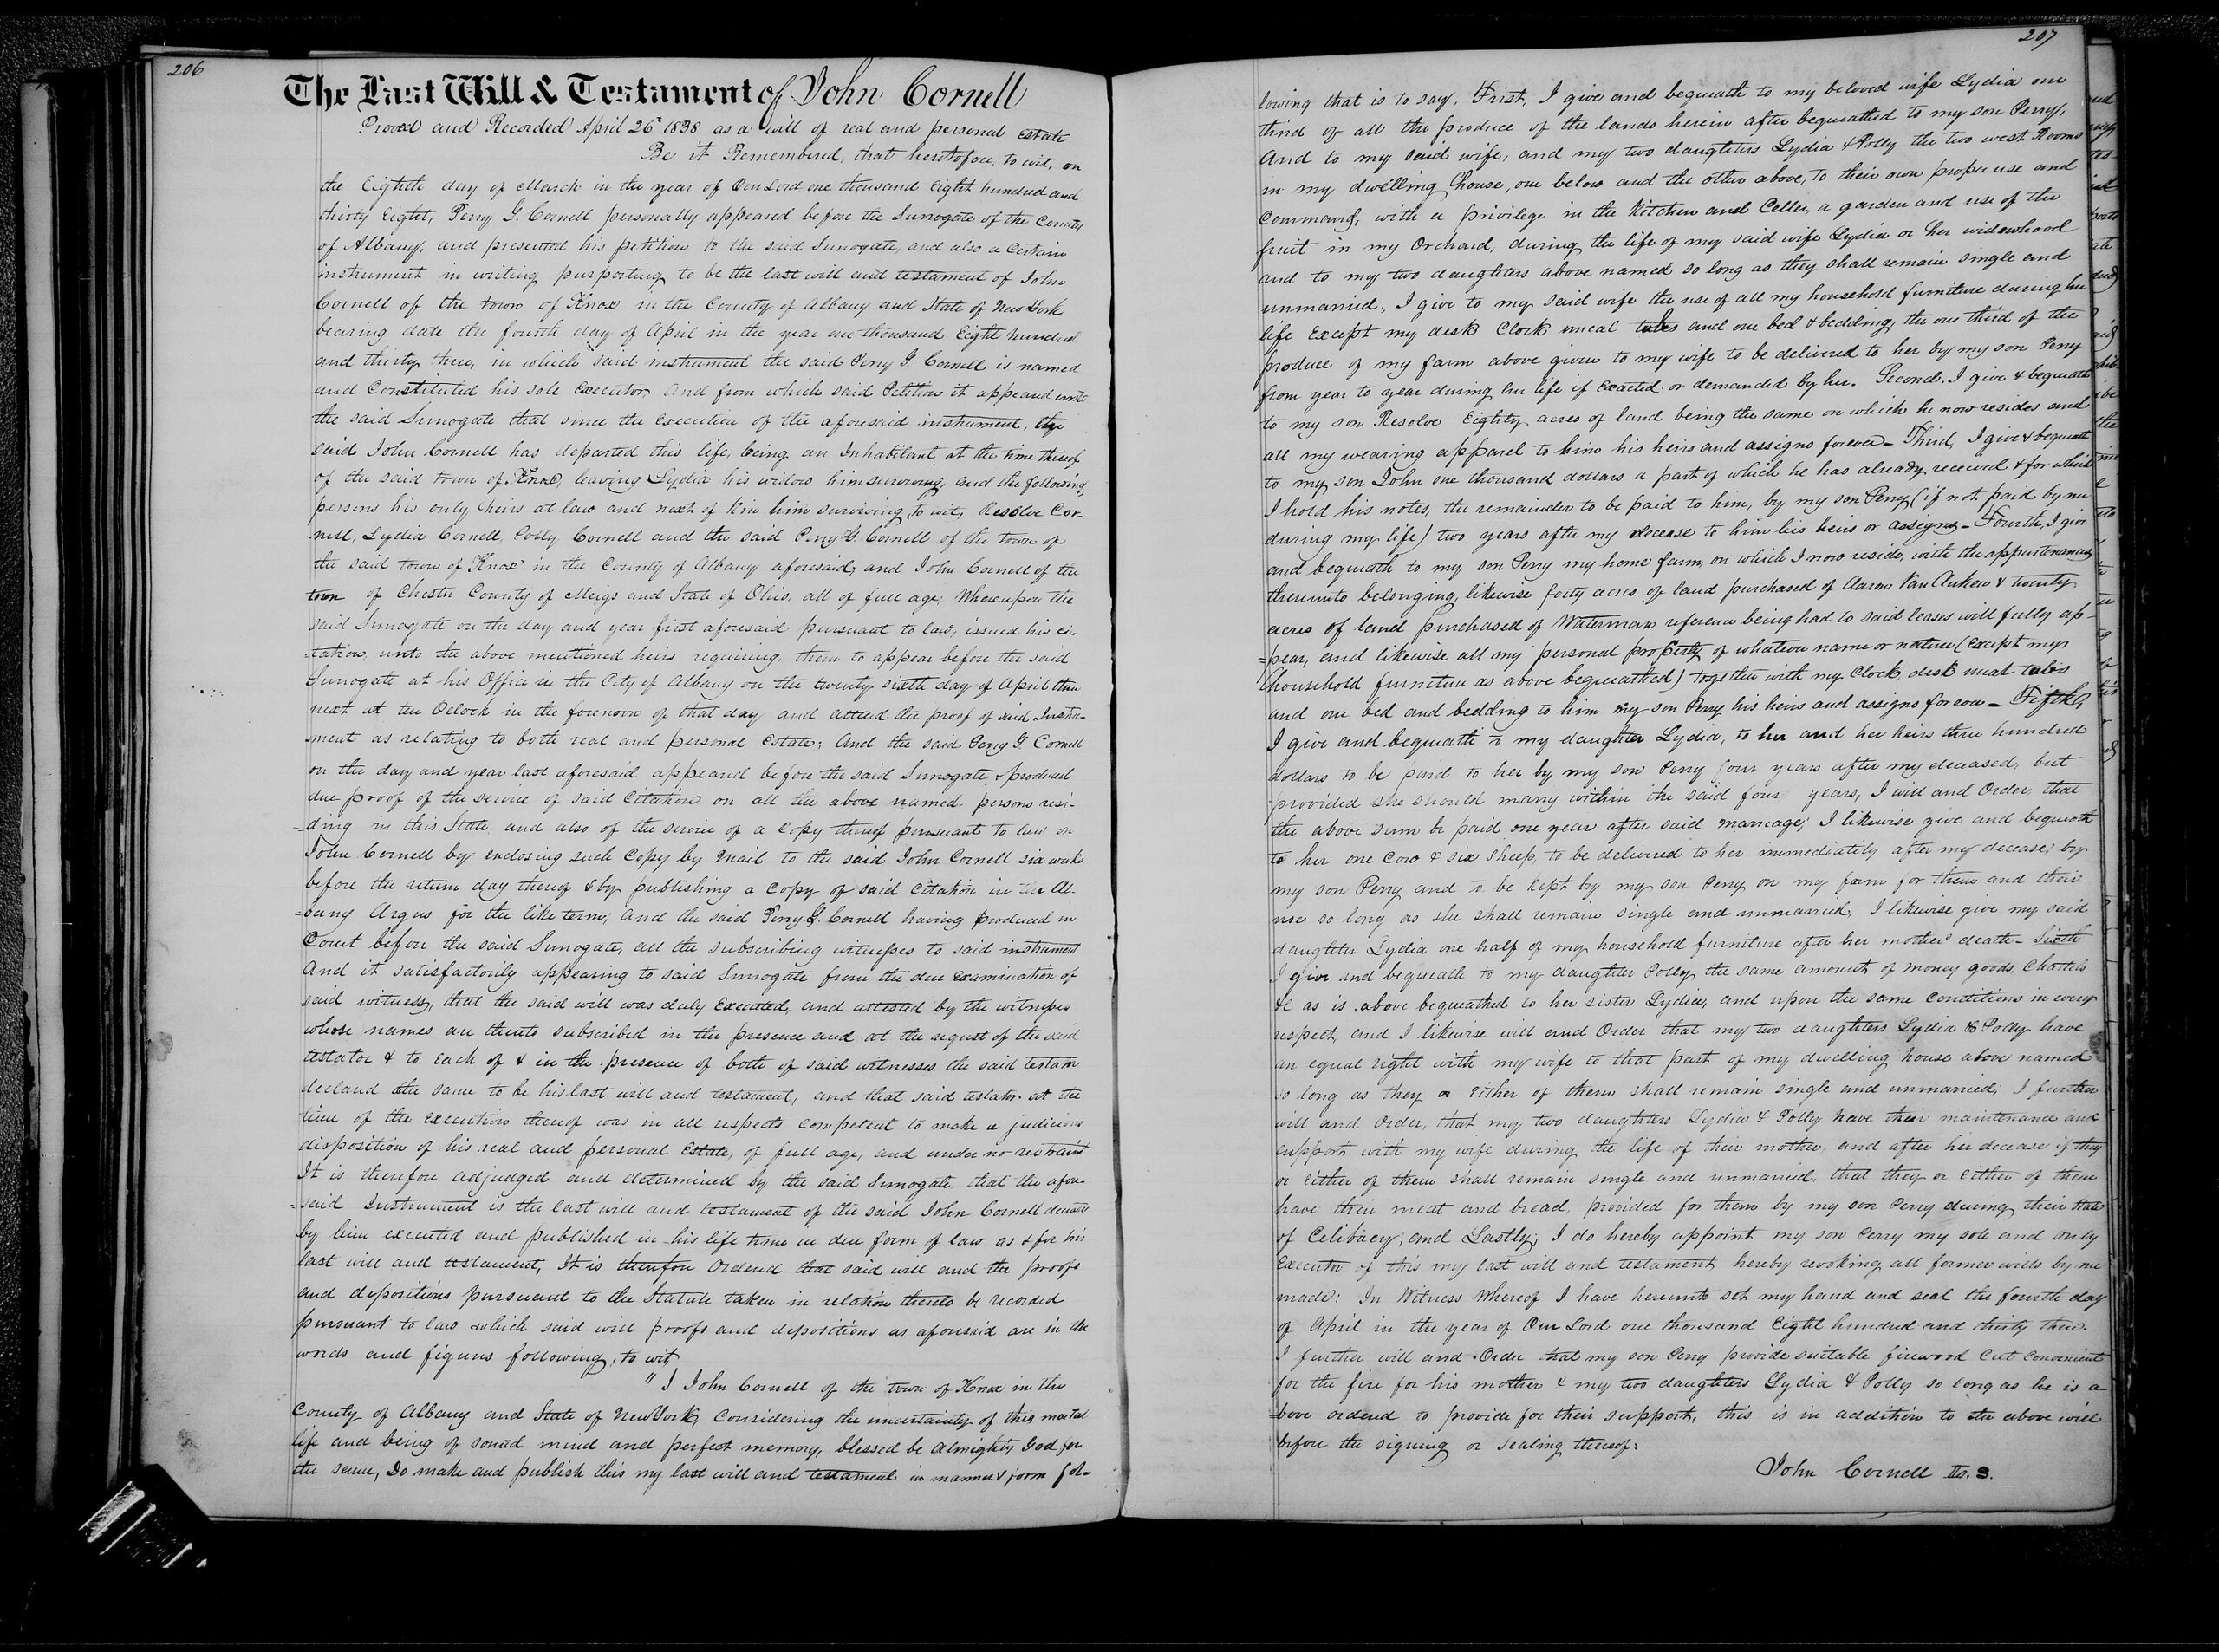 206
The Last Will & Testament of John Cornell
Proved and Recorded April 26th 1838 as a will of real and personal Estate
Be it Remembered, that heretofore, to wit, on
the Eighth day of March in the year of Our Lord one thousand Eight hundred and
thirty Eight, Perry G. Cornell personally appeared before the Surrogate of the County
of Albany, and presented his petition to the said Surrogate, and also a Certain
instrument in writing purporting to be the last will and testament of John
Cornell of the town of Knox in the County of Albany and State of New York
bearing date the fourth day of April in the year one thousand Eight hundred
and thirty three, in which said instrument the said Perry G. Cornell is named
and Constituted his sole Executor and from which said Petition it appeared unto
the said Surrogate that since the Execution of the aforesaid instrument, the
said John Cornell has departed this life, being an Inhabitant at the time thereof
of the said town of Knox, leaving Lydia his widow him surviving, and the following
persons his only heirs at law and next of Kin him surviving, to wit, Resolve Cor-
nell, Lydia Cornell, Polly Cornell and the said Perry G. Cornell of the town of
the said town of Knox in the County of Albany aforesaid, and John Cornell of the
town of Chester County of Meigs and State of Ohio, all of full age; Whereupon the
said Surrogate on the day and year first aforesaid pursuant to law, issued his ci-
-tation, unto the above mentioned heirs requiring, them to appear before the said
Surrogate at his Office in the City of Albany on the twenty sixth day of April then
next at ten Oclock in the forenoon of that day and attend the proof of said Instru-
-ment as relating to both real and personal Estate; And the said Perry G. Cornell
on the day and year last aforesaid appeared before the said Surrogate & produced
due proof of the service of said Citation on all the above named persons resi-
-ding in this State, and also of the service of a Copy thereof pursuant to law on
John Cornell by enclosing such Copy by Mail to the said John Cornell six weeks
before the return day thereof & by publishing a Copy of said Citation in the Al-
-bany Argus for the like term; and the said Perry G. Cornell having produced in
Court before the said Surrogate, all the subscribing witnesses to said instrument
And it satisfactorily appearing to said Surrogate from the due Examination of
said witness, that the said will was duly Executed, and attested by the witnesses
whose names are thereto subscribed in the presence and at the request of the said
testator & to Each of & in the presence of both of said witnesses the said testator
declared the same to be his last will and testament, and that said testator at the
time of the Execution thereof was in all respects competent to make a judicious
disposition of his real and personal Estate, of full age, and under no restraint
It is therefore adjudged and determined by the said Surrogate that the afore
-said Instrument is the last will and testament of the said John Cornell deceased
by him executed and published in his life time in due form of law as & for his
last will and testament, It is therefore Ordered that said will and the proofs
and depositions pursuant to the Statute taken in relation thereto be recorded
pursuant to law which said will proofs and depositions as aforesaid are in the
words and figures following, to wit
"I John Cornell of the town of Knox in the
County of Albany and State of New York, Considering the uncertainty of this mortal
life and being of sound mind and perfect memory, blessed be Almighty God for
the same, Do make and publish this my last will and testament in manner & form fol-
207
lowing that is to say. Frist, I give and bequeath to my beloved wife Lydia one
third of all the produce of the lands herein after bequeathed to my son Perry,
And to my said wife, and my two daughters Lydia & Polly the two west Rooms
in my dwelling house, one below and the other above, to their own proper use and
Command, with a privilege in the Kitchen and Celler, a garden and use of the
fruit in my Orchard, during the life of my said wife Lydia or her widowhood
and to my two daughters above named so long as they shall remain single and
unmarried; I give to my said wife the use of all my household furniture during her
life Except my desk Clock meal tubs and one bed & bedding, the one third of the
produce of my farm above given to my wife to be delivered to her by my son Perry
from year to year during her life if Exacted or demanded by her. Second. I give & bequeath
to my son Resolve Eighty acres of land being the same on which he now resides and
all my wearing apparel to him his heirs and assigns forever - Third, I give & bequeath
to my son John one thousand dollars a part of which he has already received & for which
I hold his notes, the remainder to be paid to him, by my son Perry (if not paid by me
during my life) two years after my decease to him his heirs or assigns - Fourth, I give
and bequeath to my son Perry my home farm, on which I now reside, with the appurtenances
thereunto belonging, likewise forty acres of land purchased of Aaron Van Auken & twenty
acres of land purchased of Waterman reference being had to said leases will fully ap-
-pear, and likewise all my personal property of whatever name or nature (Except my
household furniture as above bequeathed) together with my Clock, desk meat tubs
and one bed and bedding to him my son Perry his heirs and assigns forever - Fifth,
I give and bequeath to my daughter Lydia, to her and her heirs three hundred
dollars to be paid to her by my son Perry four years after my deceased, but
provided she should marry within the said four years, I will and Order that
the above sum be paid one year after said marriage; I likewise give and bequeath
to her one Cow & six Sheep, to be delivered to her immediately after my decease, by
my son Perry and to be kept by my son Perry on my farm for them and their
use so long as she shall remain single and unmarried, I likewise give my said
daughter Lydia one half of my household furniture after her mothers death - Sixth
I give and bequeath to my daughter Polly the same amount of money goods, Chattels
&c as is above bequeathed to her sister Lydia, and upon the same Conditions in every
respect, and I likewise will and Order that my two daughters Lydia & Polly have
an equal right with my wife to that part of my dwelling house above named
so long as they or Either of them shall remain single and unmarried; I further
will and Order, that my two daughters Lydia & Polly have their maintenance and
support with my wife during the life of their mother, and after her decease if they
or Either of them shall remain single and unmarried, that they or Either of them
have their meat and bread, provided for them by my son Perry during their state
of Celibacy; and Lastly; I do hereby appoint my son Perry my sole and only
Executor of this my last will and testament hereby revoking all former wills by me
made: In Witness Whereof I have hereunto set my hand and seal the fourth day
of April in the year of Our Lord one thousand Eight hundred and thirty three.
I further will and Order that my son Perry provide suitable firewood Cut convenient
for the fire for his mother & my two daughters Lydia & Polly so long as he is a-
-bove ordered to provide for their support, this is in addition to the above will
before the signing or sealing thereof:
John Cornell